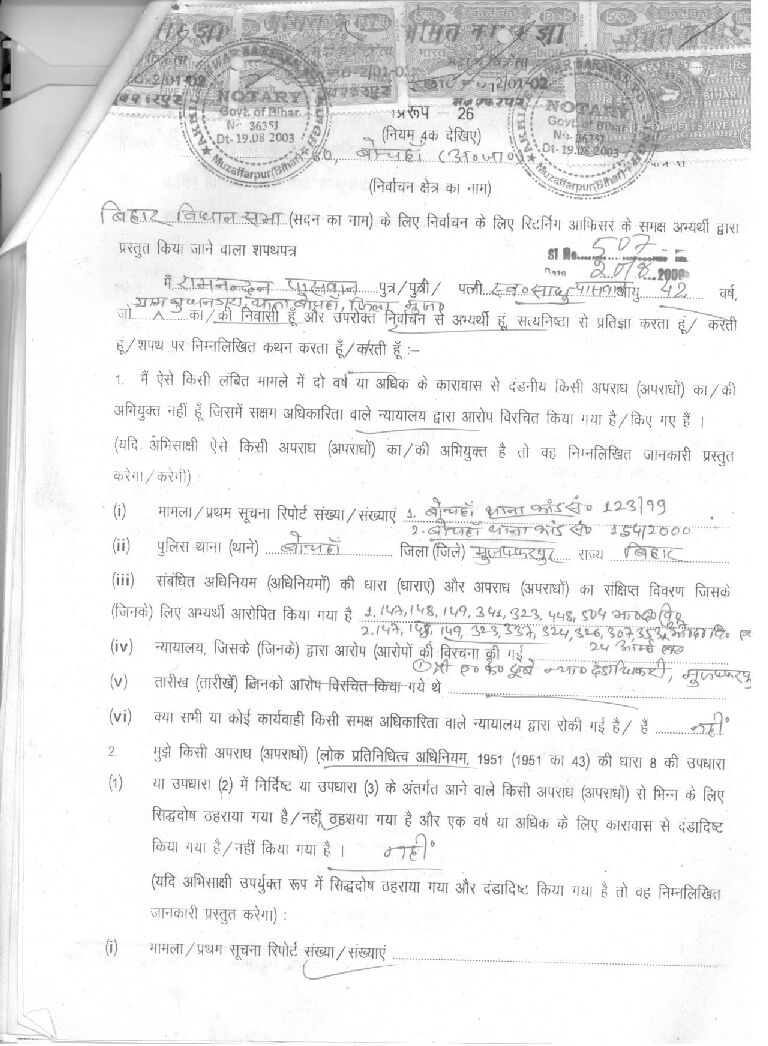 NOTARY
Govt. of Bihar
No- 36351
Dt- 19.08 2003
Muzaffarpur(Bihar)
NOTARY
Govt. of Bihar
No- 36351
Dt- 19.08 2003
Muzaffarpur(Bihar)
प्ररूप – 26
(नियम 4क देखिए)
बोचहाँ (अ०जा०)
(निर्वाचन क्षेत्र का नाम)
बिहार विधान सभा (सदन का नाम) के लिए निर्वाचन के लिए रिटर्निंग आफिसर के समक्ष अभ्यर्थी द्वारा
प्रस्तुत किया जाने वाला शपथपत्र
Sl No. 507
Date 20/8 200
मैं रामनन्दन पासवान पुत्र/पुत्री/ पत्नी स्व० साधु पासवान आयु 42 वर्ष,
जो का/की निवासी हूँ और उपरोक्त निर्वाचन से अभ्यर्थी हूं, सत्यनिष्ठा से प्रतिज्ञा करता हूं/ करती
हूं/शपथ पर निम्नलिखित कथन करता हूँ/करती हूँ :–
1. मैं ऐसे किसी लंबित मामले में दो वर्ष या अधिक के कारावास से दंडनीय किसी अपराध (अपराधों) का/की
अभियुक्त नहीं हूँ जिसमें सक्षम अधिकारिता वाले न्यायालय द्वारा आरोप विरचित किया गया है/किए गए हैं ।
(यदि अभिसाक्षी ऐसे किसी अपराध (अपराधों) का/की अभियुक्त है तो वह निम्नलिखित जानकारी प्रस्तुत
करेगा/करेगी) :
(i) मामला/प्रथम सूचना रिपोर्ट संख्या/संख्याएं 1. बोचहाँ थाना कांड सं० 123/99
2. बोचहाँ थाना कांड सं० 154/2000
(ii) पुलिस थाना (थाने) बोचहाँ जिला (जिले) मुजफ्फरपुर राज्य बिहार
(iii) संबंधित अधिनियम (अधिनियमों) की धारा (धाराएं) और अपराध (अपराधों) का संक्षिप्त विवरण जिसके
(जिनके) लिए अभ्यर्थी आरोपित किया गया है 1. 147, 148, 149, 341, 323, 448, 504 भा०द०वि०
2. 147, 148, 149, 323, 337, 324, 326, 307, 353
(iv) न्यायालय, जिसके (जिनके) द्वारा आरोप (आरोपों की विरचना की गई
(v) तारीख (तारीखें) जिनको आरोप विरचित किया गये थे
(vi) क्या सभी या कोई कार्यवाही किसी समक्ष अधिकारिता वाले न्यायालय द्वारा रोकी गई है/ हैं नहीं
2. मुझे किसी अपराध (अपराधों) (लोक प्रतिनिधित्व अधिनियम, 1951 (1951 का 43) की धारा 8 की उपधारा
(1) या उपधारा (2) में निर्दिष्ट या उपधारा (3) के अंतर्गत आने वाले किसी अपराध (अपराधों) से भिन्न के लिए
सिद्धदोष ठहराया गया है/नहीं ठहराया गया है और एक वर्ष या अधिक के लिए कारावास से दंडादिष्ट
किया गया है/नहीं किया गया है । नहीं
(यदि अभिसाक्षी उपर्युक्त रूप में सिद्धदोष ठहराया गया और दंडादिष्ट किया गया है तो वह निम्नलिखित
जानकारी प्रस्तुत करेगा) :
(i) मामला/प्रथम सूचना रिपोर्ट संख्या/संख्याएं